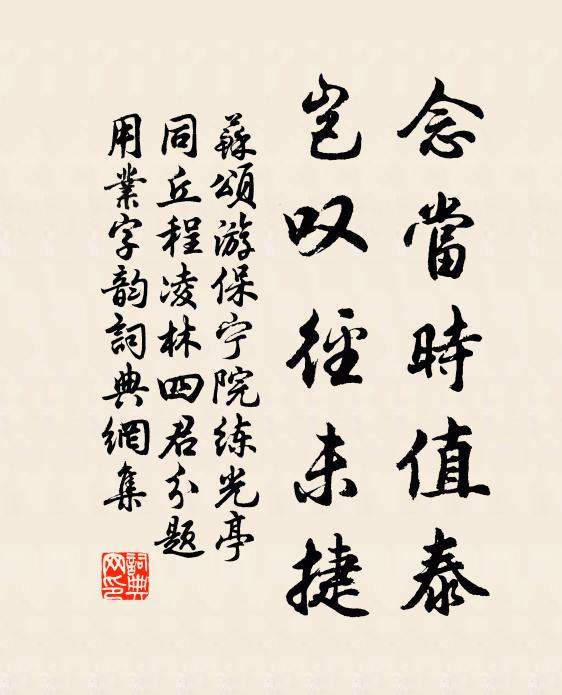 念當時值泰
豈叹徑未捷
蘇頌游保宁院练光亭
同丘程凌林四君分题
用業字韵詞典網集
詞典网印